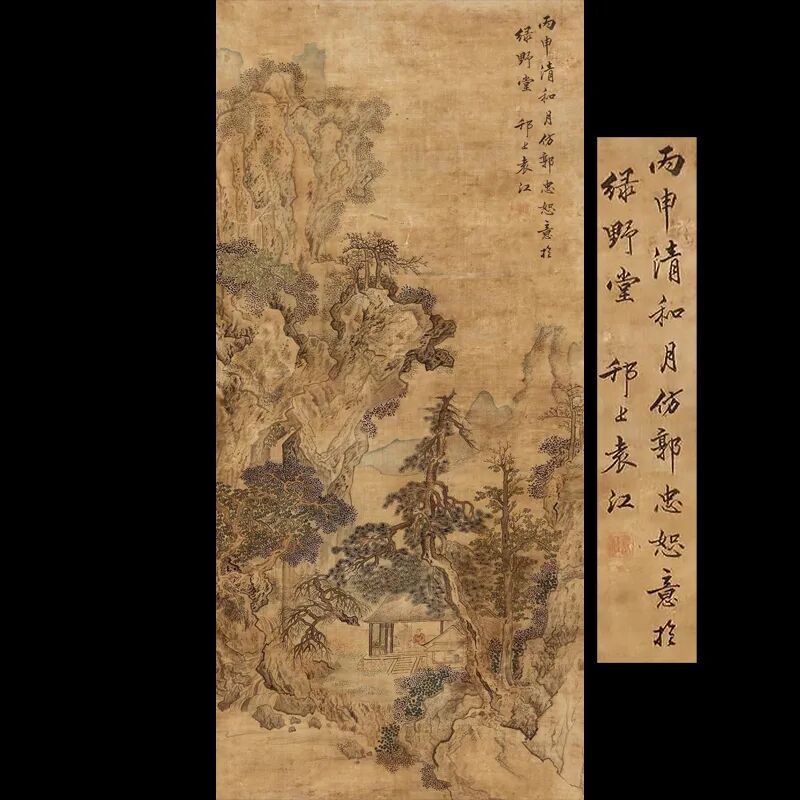 丙申清和月仿郭忠恕意於
绿野堂 邗上袁江
丙申清和月仿郭忠恕意於
绿野堂 邗上袁江